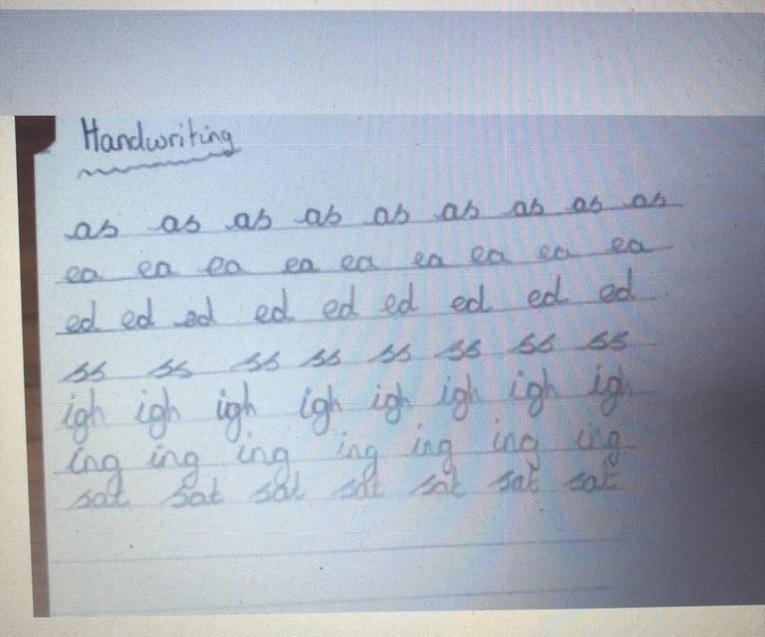 Handwriting
as as as as as as as as as
ea ea ea ea ea ea ea ea ea
ed ed ed ed ed ed ed ed ed
ss ss ss ss ss ss ss ss
igh igh igh igh igh igh igh igh
ing ing ing ing ing ing ing
sat sat sat sat sat sat sat